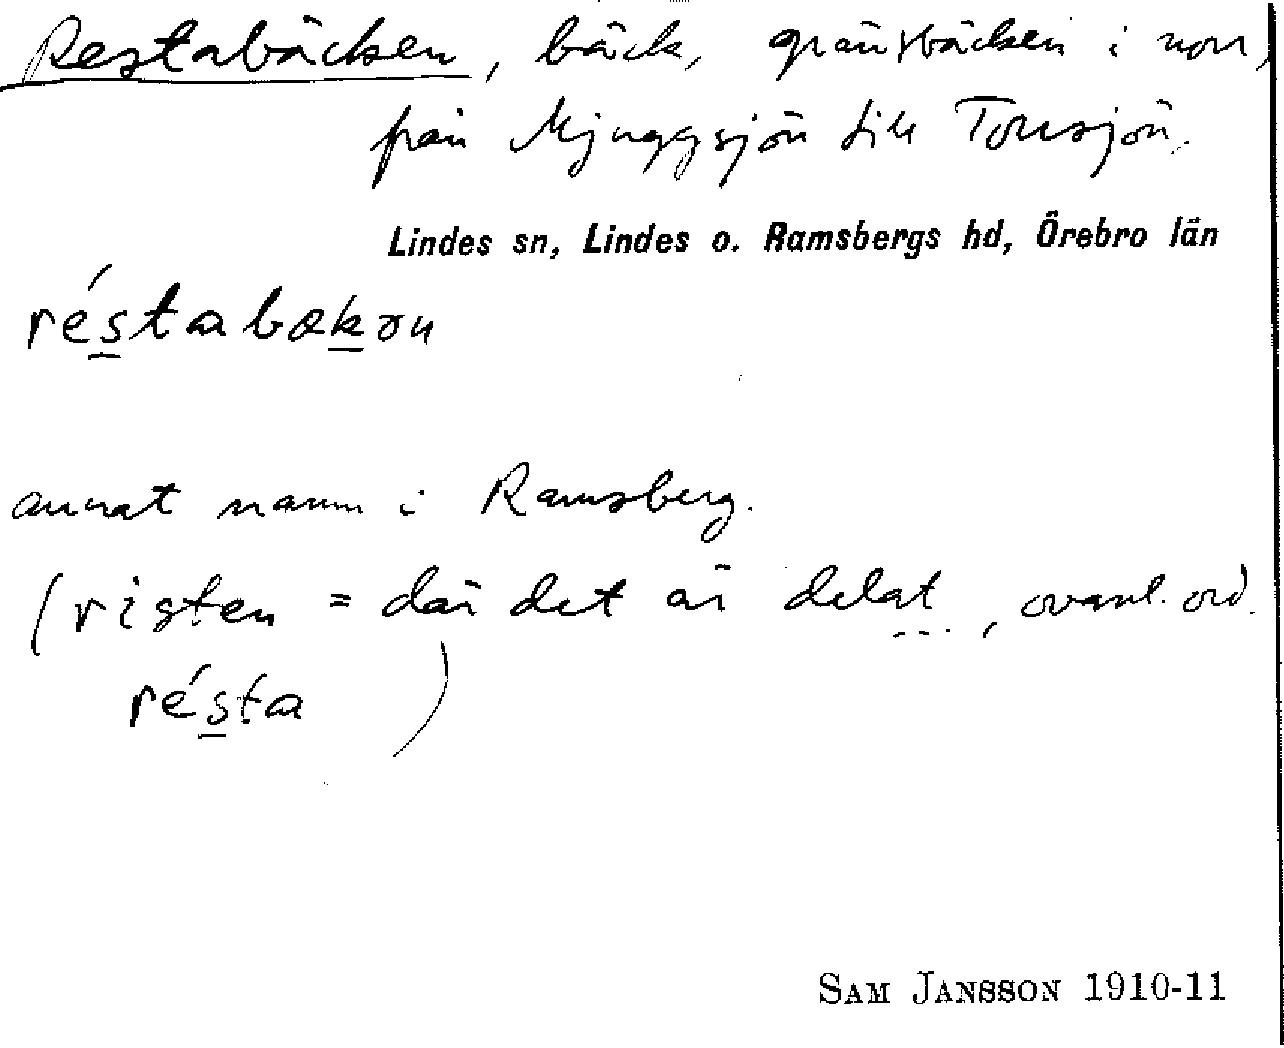 Restabäcken, bäck, gränsbäcken i norr,
från Mjuggsjön till Torrsjön.
Lindes sn, Lindes o. Ramsbergs hd, Örebro län
réstabækən
annat namn i Ramsberg.
(risten = där det är delat, ovanl. ord.
résta )
SAM JANSSON 1910-11